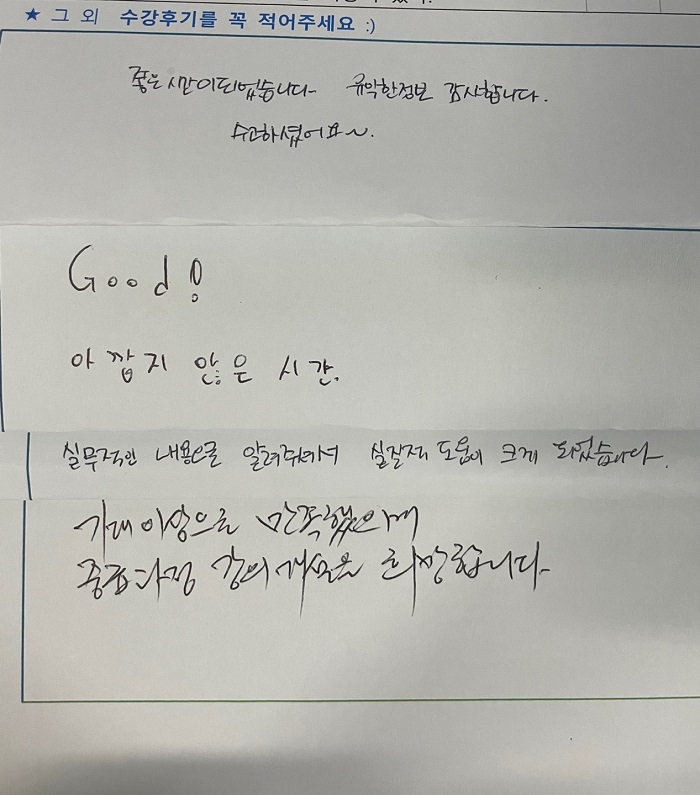 ★ 그 외 수강후기를 꼭 적어주세요 :)
좋은 시간이되었습니다. 감사합니다.
수고하셨어요~.
Good!
아깝지 않은 시간.
실무적인 내용을 알려주셔서 실질적 도움이 크게 되었습니다.
기대 이상으로 만족했으며
중급과정 강의 개설을 희망합니다.